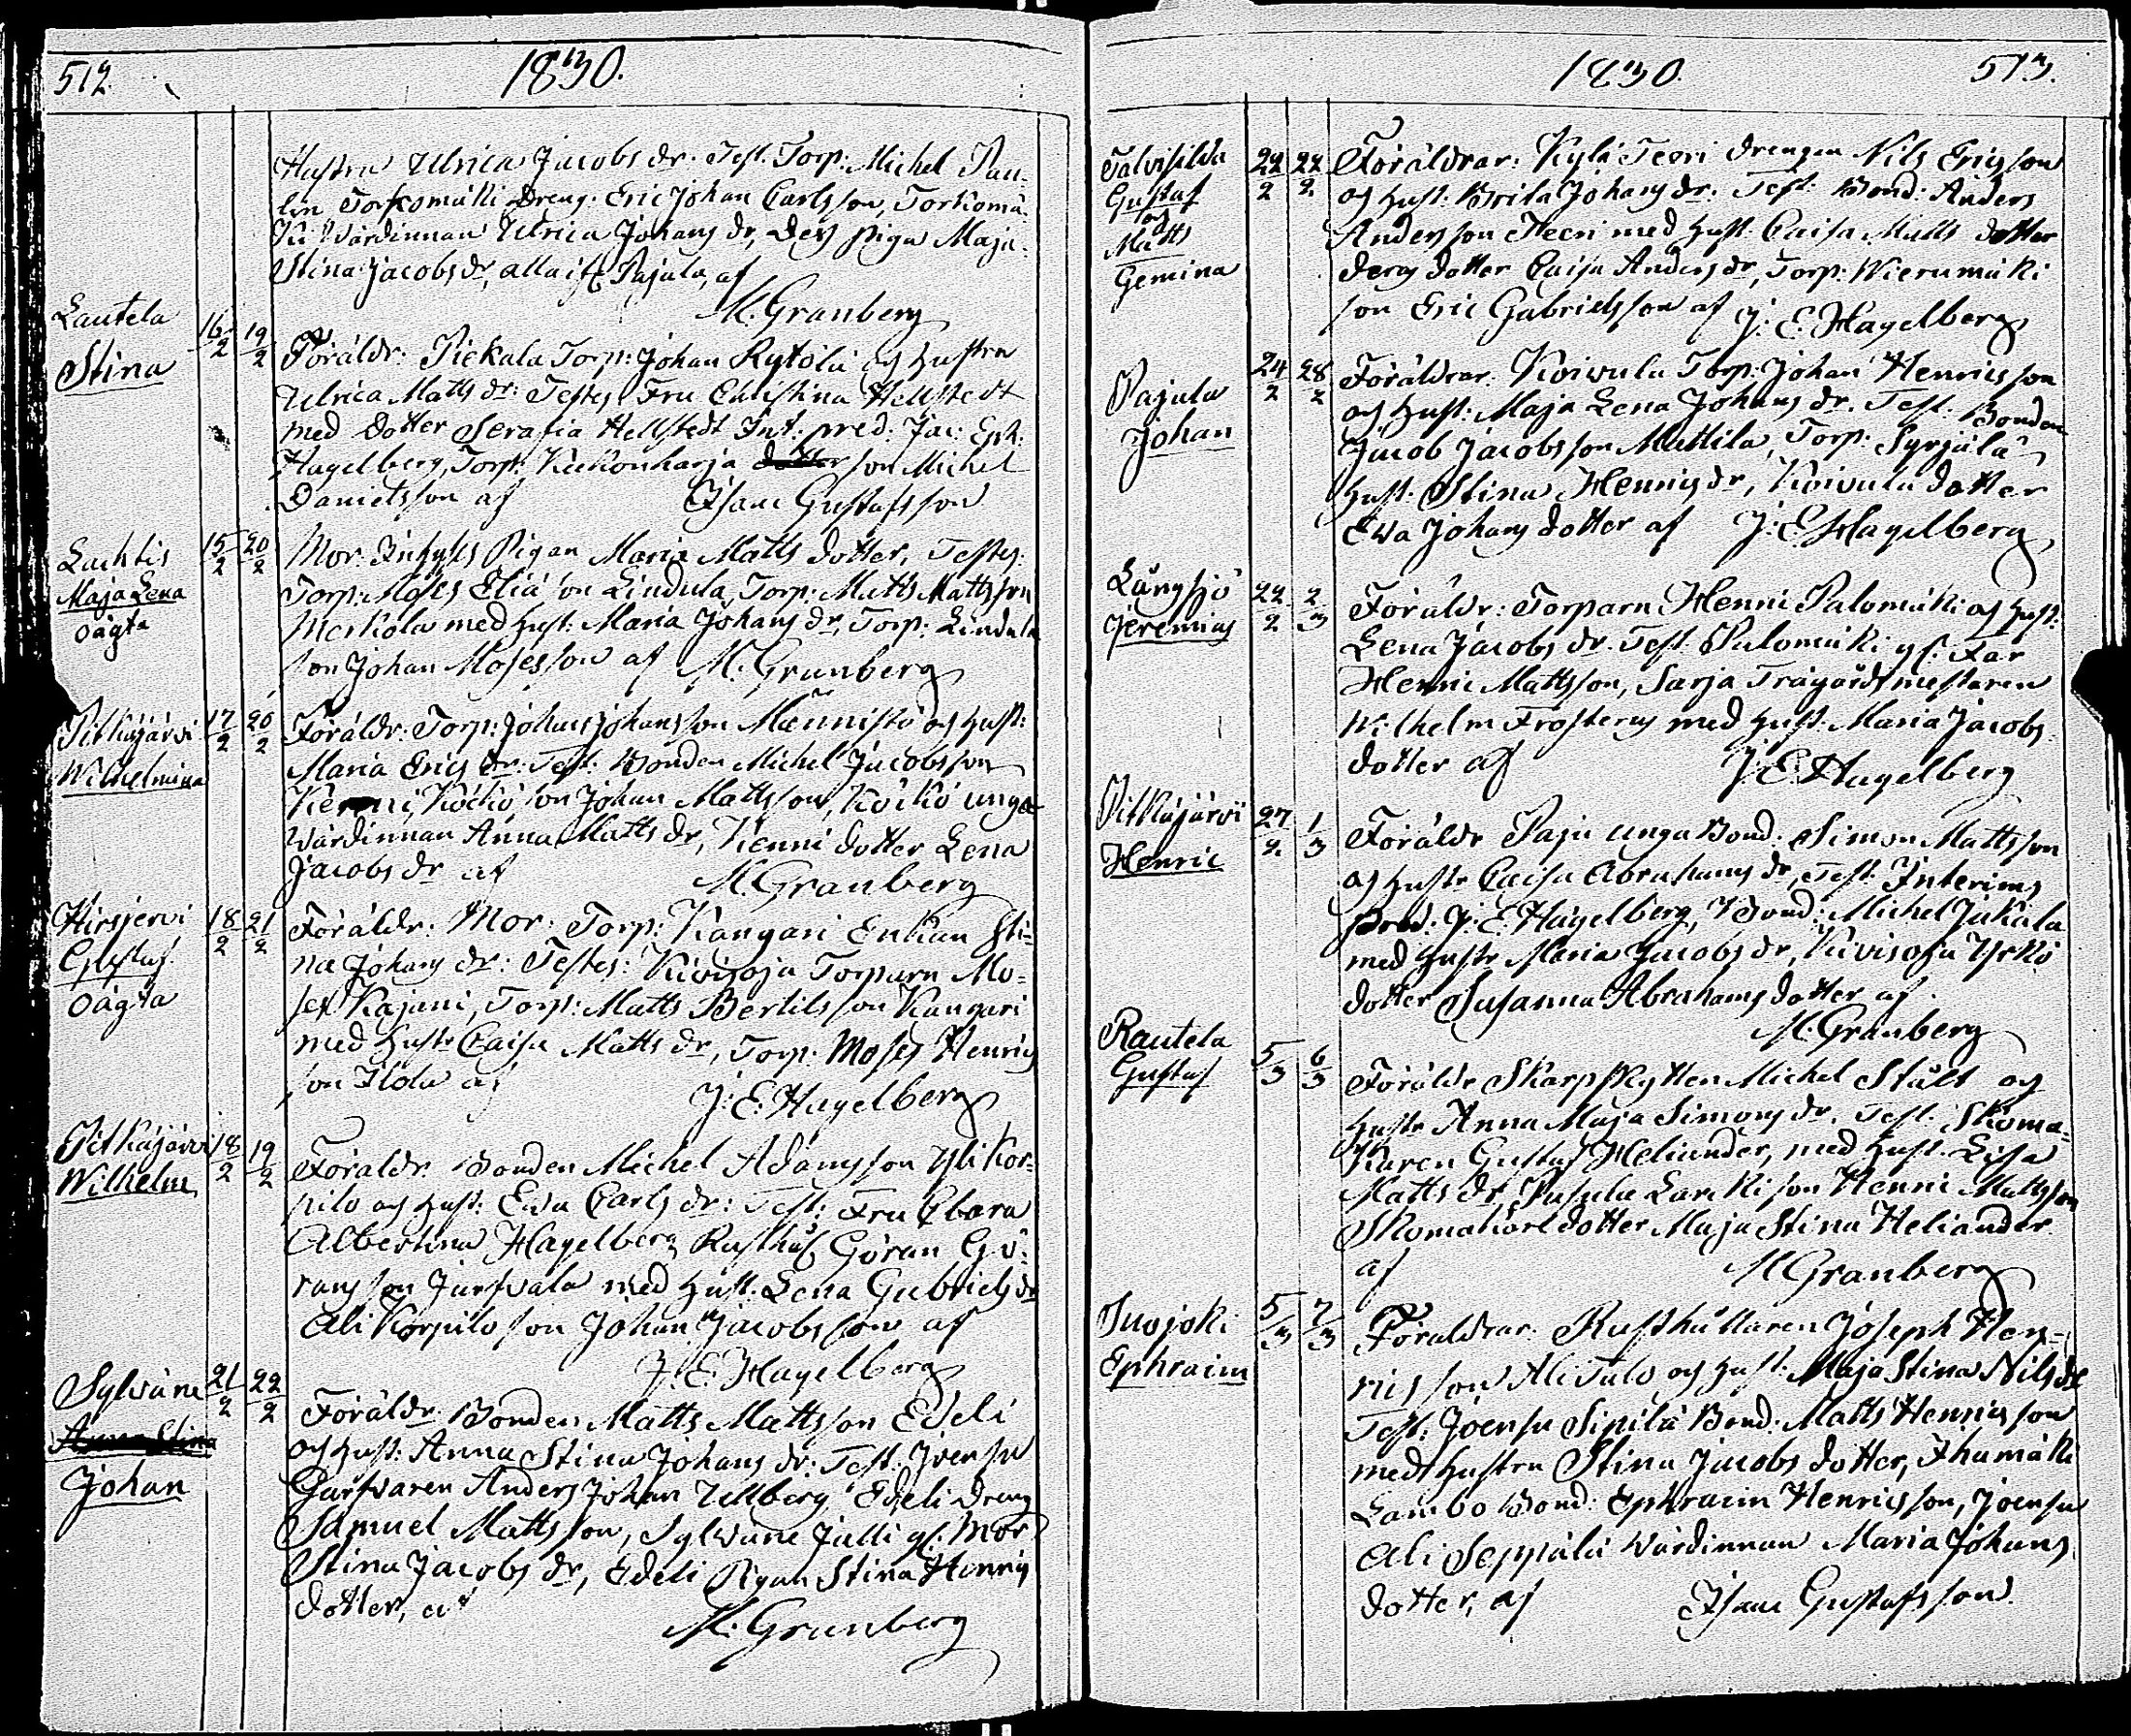 512
1830.
Hustru Ulrica Jacobs dr. Test. Torp: Michel Pau-
lin, Torkomäki Dreng. Eric Johan Carlsson, Torkomä-
ki Wärdinnan Ulrica Johans dr, Des Piga Maja
Stina Jacobs dr, alla ifr. Pajula, af
M. Granberg
Lautela
Stina
16/2 19/2
Föräldr: Piekala Torp: Johan Rytölä och Hustru
Ulrica Matts dr: Testes Fru Christina Hellstedt
med dotter Serafia Hellstedt Int: pred: Jac: Eph:
Hagelberg, Torp: Kiekonharja son Michel
Danielsson af Isaac Gustafsson
Lachtis
Maja Lena
oägta
15/2 20/2
Mor. Inhyses Pigan Maria Matts dotter, Testes:
Torp: Moses Elia son Lindula, Torp: Matts Mattsson
Merkola med Hust: Maria Johans dr, Torp: Lindula
son Johan Mosesson af M. Granberg
Pitkäjärvi
Wilhelmina
17/2 20/2
Föräldr: Torp: Johan Johansson Männistö och Hust:
Maria Erics dr: Test: Bonden Michel Jacobsson
Kenni, Köckö son Johan Mattsson, Köckö unga
Wärdinnan Anna Matts dr, Kenni dotter Lena
Jacobs dr af M. Granberg
Hirsjervi
Gustaf
oägta
18/2 21/2
Föräldr: Mor: Torp: Kangari Enkan Sti-
na Johans dr: Testes: Kivisoja Torparn Mo-
ses Kajani, Torp: Matts Bertilsson Kangari
med Hustr Caisa Matts dr, Torp: Moses Henrics
son Ilola af J: E: Hagelberg
Pitkäjärvi
Wilhelm
18/2 19/2
Föräldr. Bonden Michel Adamsson Yli Kor-
pilo och Hust: Ewa Carls dr: Test: Fru Ebara
Albertina Hagelberg Rusthåll: Göran Gö-
ransson Jursvala med Hust. Lena Gabriels dr
Ali Korpilo son Johan Jacobsson af
J. E. Hagelberg
Sylväne
Anna Stina
Johan
21/2 22/2
Föräldr. Bonden Matts Mattsson Edeli
och Hust: Anna Stina Johans dr: Test: Joensu
Garfvaren Anders Johan Ullberg, Edeli Dreng
Samuel Mattsson, Sylväne Jalli gl: Mor
Stina Jacobs dr, Edeli Pigan Stina Henrics
dotter, af
M: Granberg
1830.
513.
Talvisilda
Gustaf
och
Matts
Gemina
22/2 22/2
Föräldrar: Kylä Teeri Drengen Nils Ericsson
och Hust: Brita Johans dr: Test: Bond: Anders
Andersson Teeri med Hust. Caisa Matts dotter
deras dotter Caisa Anders dr, Torp: Wierumäki
son Eric Gabrielsson af J: E. Hagelberg
Pajula
Johan
24/2 28/2
Föräldrar: Koivula Torp: Johan Henricsson
och Hust: Maja Lena Johans dr. Test. Bonden
Jacob Jacobsson Mattila, Torp: Syrjälä
Hust: Stina Henrics dr, Koivula dotter
Ewa Johans dotter af J: E. Hagelberg
Långsjö
Jeremias
22/2 2/3
Föräldr: Torparn Henric Palomäki och Hust:
Lena Jacobs dr. Test. Palomäki gl: Far
Henric Mattsson, Sarja Trägårdsmestaren
Wilhelm Frosterus med Hust: Maria Jacobs
dotter af J: E: Hagelberg
Pitkäjärvi
Henric
27/2 1/3
Föräldr Paju unga Bond: Simon Mattsson
och Hustr Caisa Abrahams dr, Test: Interims
Pred. J: E. Hagelberg, Bond: Michel Jukala
med Hustr Maria Jacobs dr, Kivisoja Yrkö
dotter Susanna Abrahams dotter af
M. Granberg
Rautela
Gustaf
5/3 6/3
Föräldr Skarpskytten Michel Stålt och
Hustr Anna Maja Simons dr. Test: Skoma-
karen Gustaf Heliander, med Hust. Lisa
Matts dr, Pusula Larikison Henric Mattsson
Skomakare dotter Maja Stina Heliander
af M Granberg
Suojoki
Ephraim
5/3 7/3
Föräldrar: Rusthållaren Joseph Hen-
ricsson Ali Talo och Hust: Maja Stina Nils dr
Test: Joensu Sipilä Bond: Matts Henricsson
med Hustru Stina Jacobs dotter, Ihamäki
Lambo Bond: Ephraim Henricsson, Joensu
Ali Seppälä Wärdinnan Maria Johans
dotter, af Isaac Gustafsson.